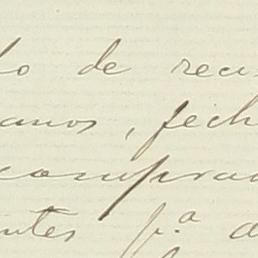 lo de reci
anos, fech
comprad
ntes p.ª d